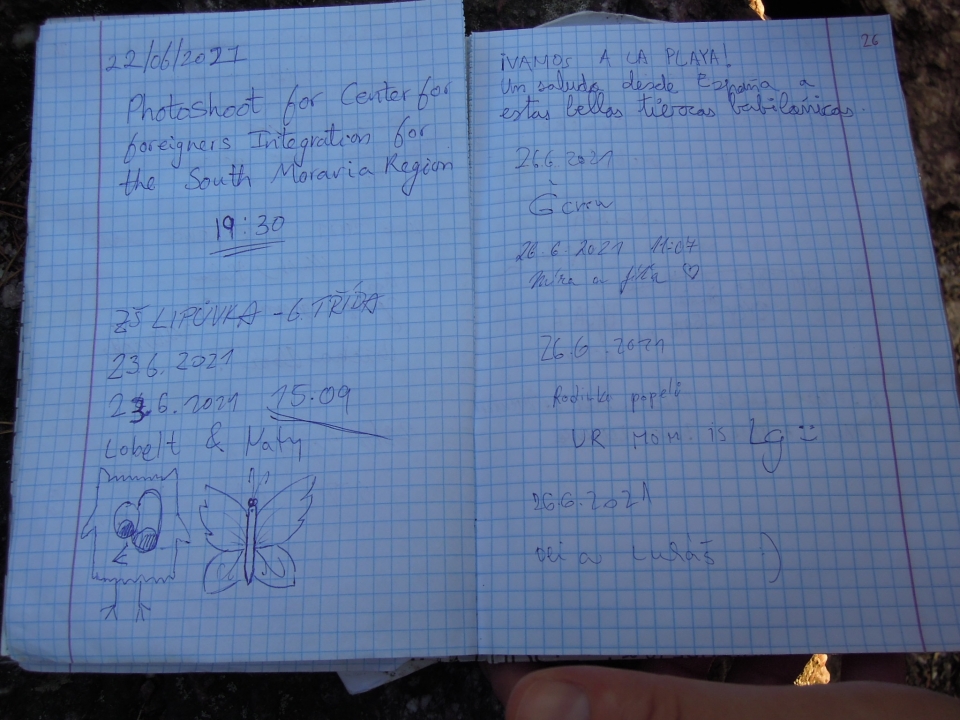 22/06/2021
Photoshoot for Center for
foreigners Integration for
the South Moravia Region
19:30
ZŠ LIPŮVKA - 6. TŘÍDA
23 6. 2021
23.6. 2021 15.09
Lobelt & Maty
26
¡VAMOS A LA PLAYA!
Un saludo desde España a
estas bellas
26.6 2021
26. 6. 2021 11:07
a
26.6. 2021
Rodinka popelů
UR MOM. is Lg
26.6.2021
a Lukáš :)